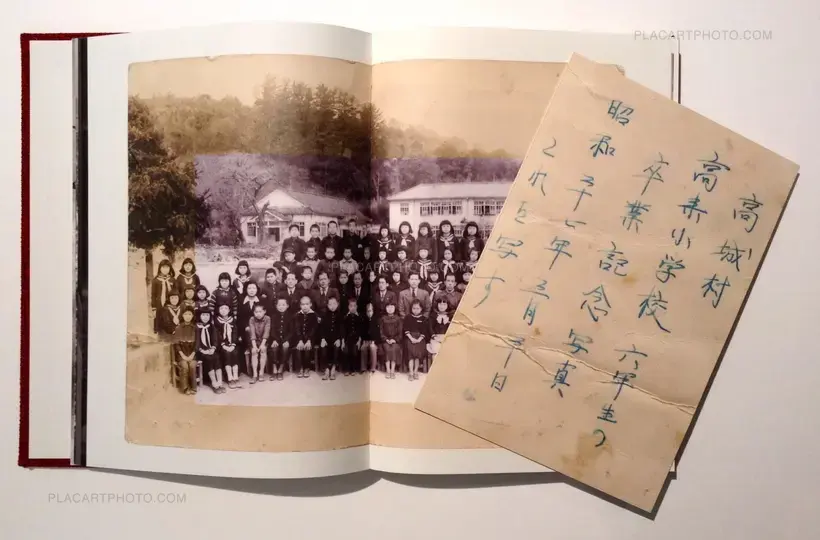 PLACARTPHOTO.COM
高城村
高小学校 六年生の
卒業記念写真
昭和年月日
これを写す
PLACARTPHOTO.COM
PLACARTPHOTO.COM